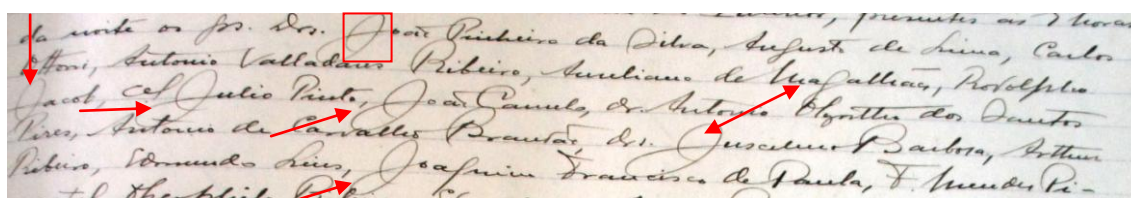 presentes as 7 horas
da noite os srs. Drs. João Pinheiro da Silva, Augusto de Lima, Carlos
Ottoni, Antonio Valladares Ribeiro, Aureliano de Magalhães, Rodolpho
Jacob, cel Julio Pinto, João Camelo, dr. Antonio Olyntho dos Santos
Pires, Antonio de Carvalho Brandão, drs. Juscelino Barbosa, Arthur
Ribeiro, Edmundo Lins, Joaquim Francisco de Paula, F. Mendes Pi-